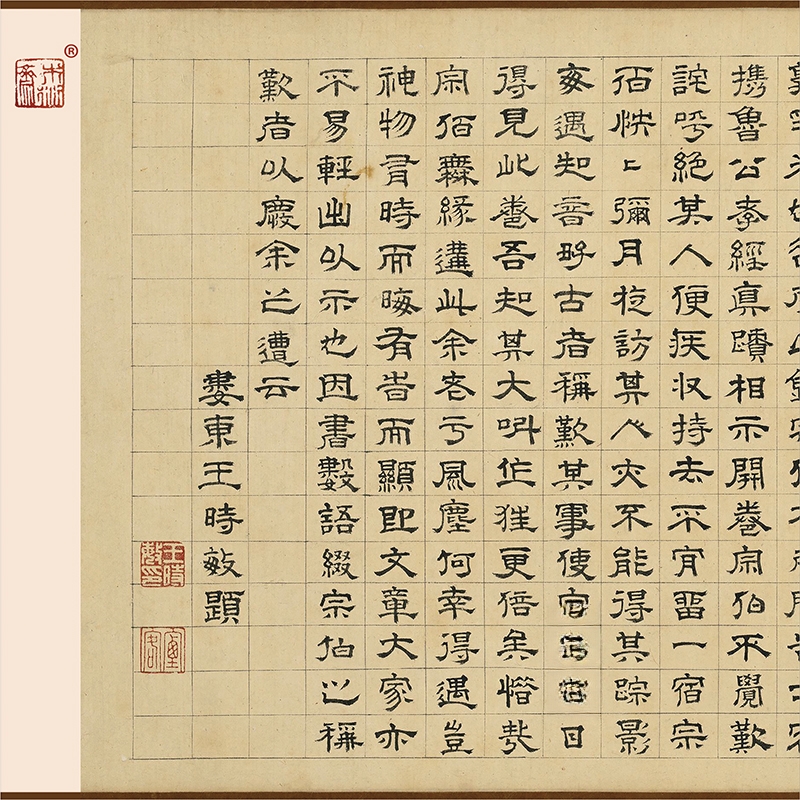 攜魯公孝經真蹟相示開卷宗伯不覺歎
詫呼絕其人便疾收持去不肯留一宿宗
伯怏〻彌月往訪其人不能得其踪影
每遇知音好古者稱歎其事使日
得見此卷吾知其大叫作狂更倍矣惜哉
宗伯無緣遘此余老于風塵何幸得遇豈
神物有時而晦有時而顯即文章大家亦
不易輕出以示也因書數語綴宗伯之稱
歎者以慶余之遭云
婁東王時敏題
王時敏印